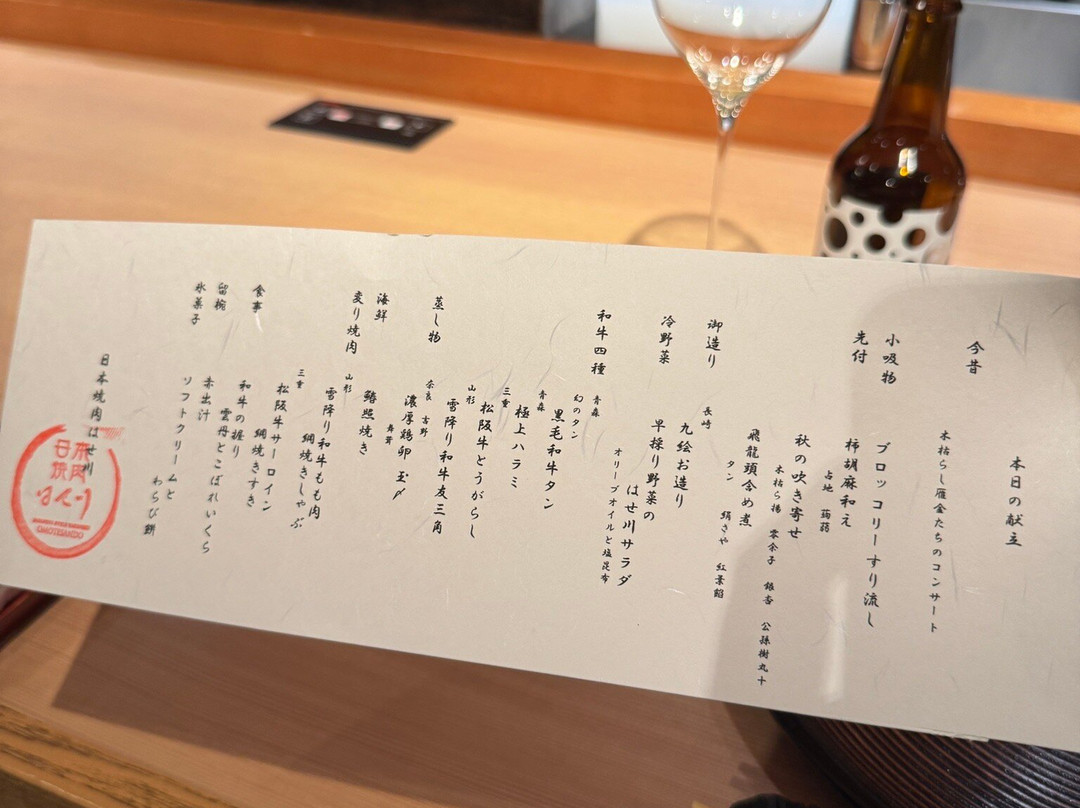 本日の献立
今昔
木枯らし雁金たちのコンサート
小吸物
ブロッコリーすり流し
先付
柿胡麻和え
占地 蒟蒻
秋の吹き寄せ
木枯ら揚 零余子 銀杏 公孫樹丸十
飛龍頭含め煮
タン 絹さや 紅葉餡
御造り
長崎
九絵お造り
冷野菜
早採り野菜の
はせ川サラダ
オリーブオイルと塩昆布
和牛四種
青森
幻のタン
黒毛和牛タン
青森
極上ハラミ
三重
松阪牛とうがらし
山形
雪降り和牛友三角
蒸し物
奈良 吉野
濃厚鶏卵 玉〆
舞茸
海鮮
鰆照焼き
変り焼肉
山形
雪降り和牛もも肉
網焼きしゃぶ
三重
松阪牛サーロイン
網焼きすき
食事
和牛の握り
雲丹とこぼれいくら
留椀
赤出汁
氷菓子
ソフトクリームと
わらび餅
日本焼肉はせ川
日本
焼肉
はせ川